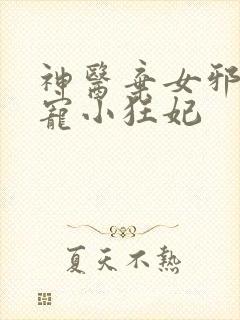 神醫棄女邪
寵小狂妃
夏天不熱